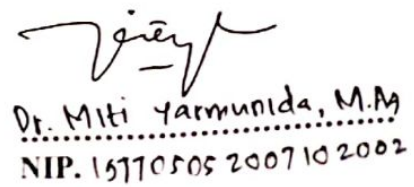 Dr. Miti Yarmunida, M.Ag
NIP. 197705052007102002